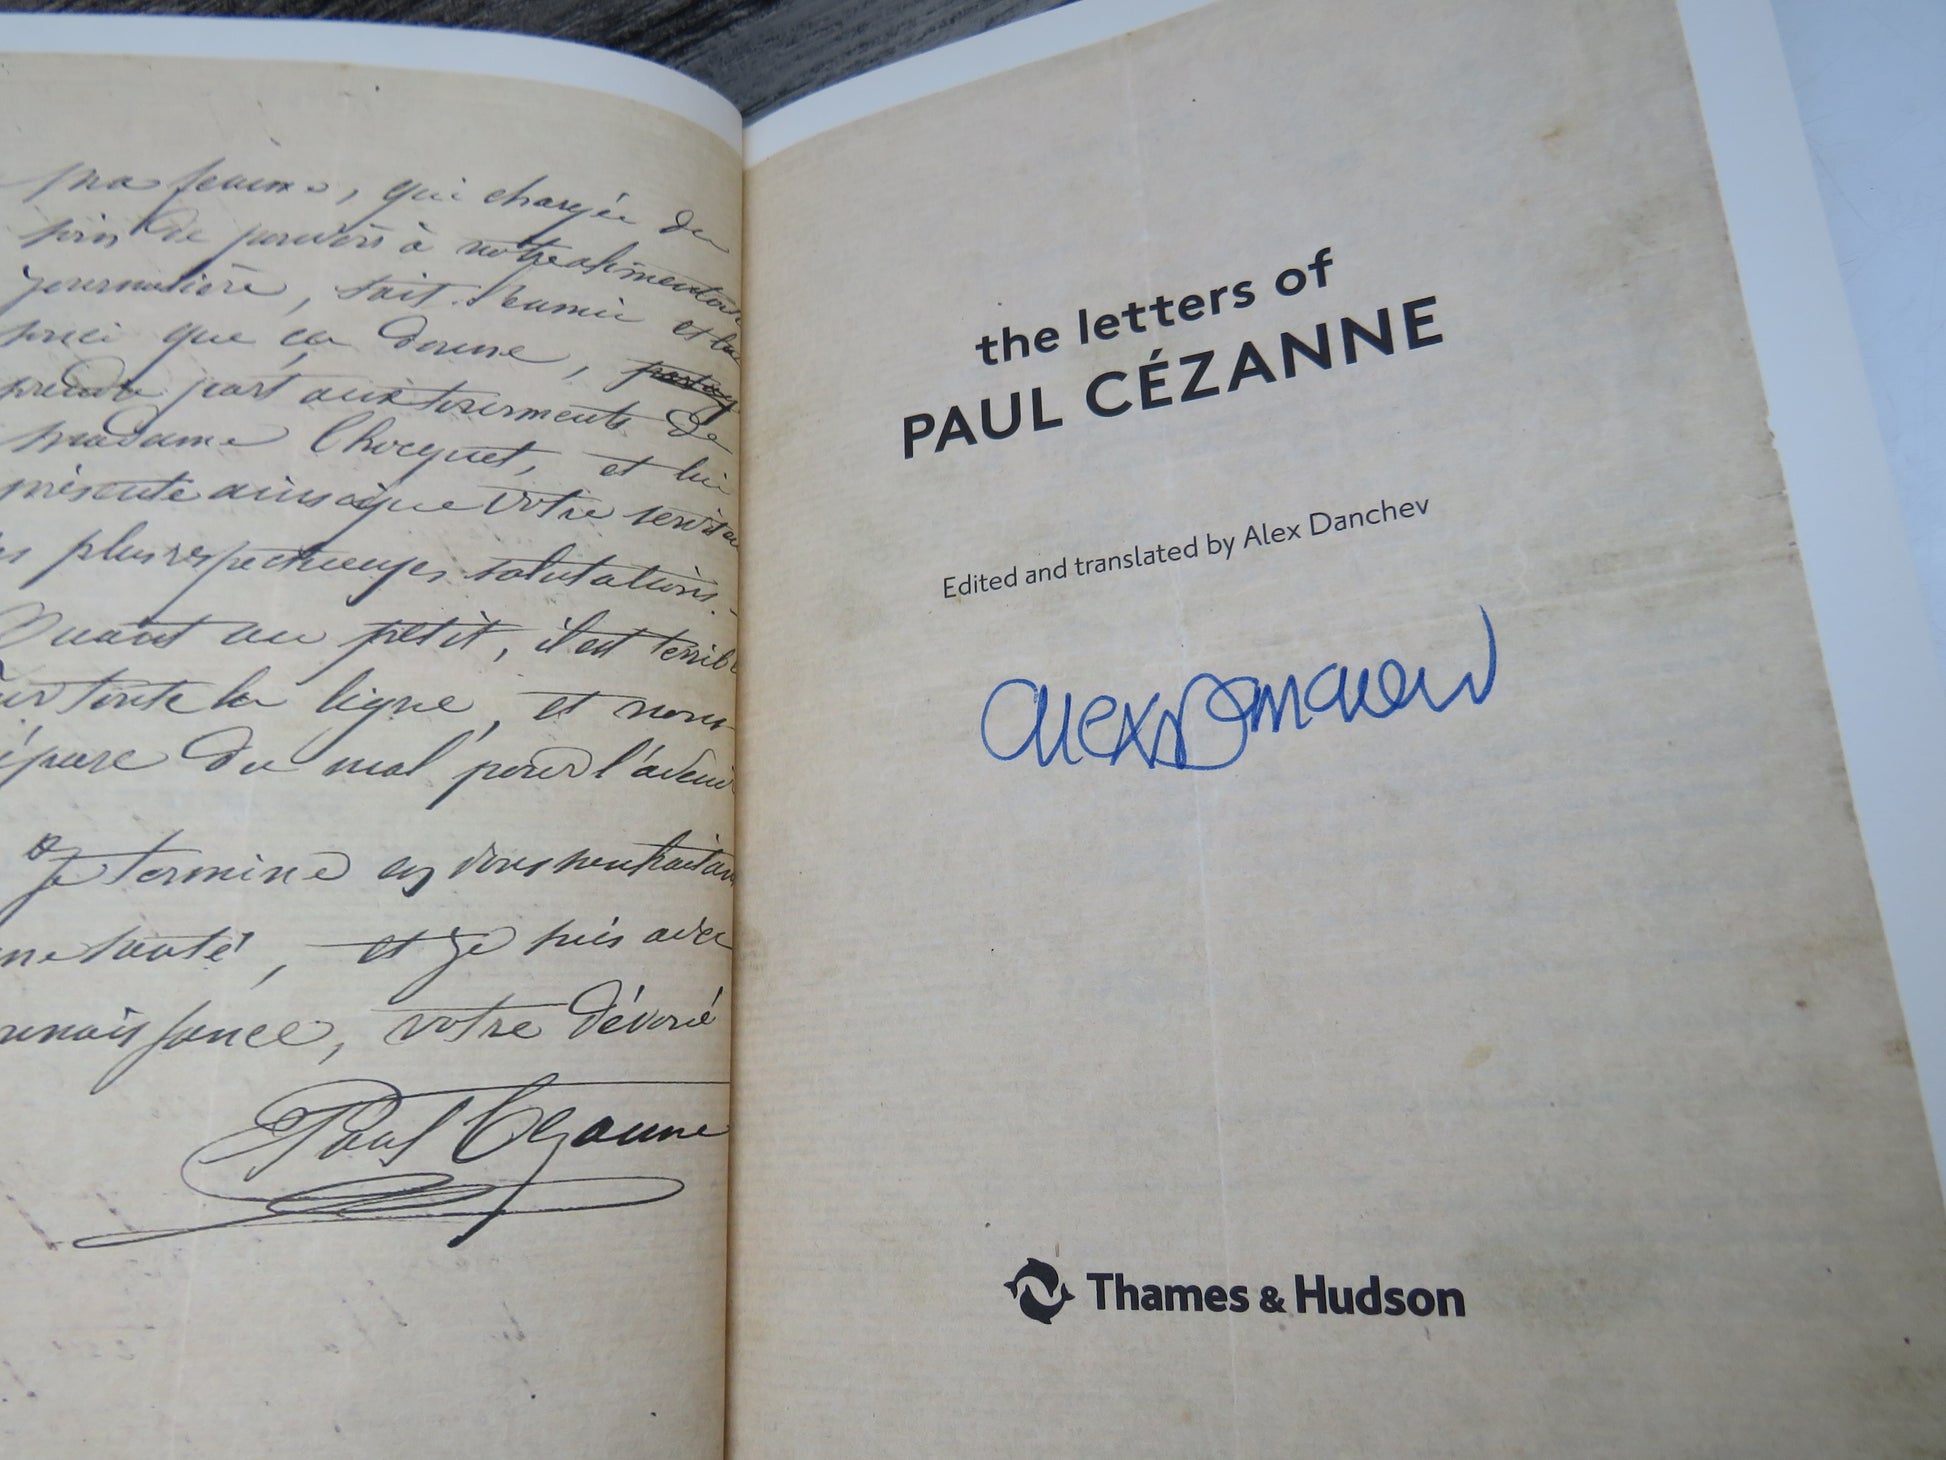 ma femme, qui chargée du
soin de pourvoir à notre alimentation
journalière, sait l'ennui et le
souci que ça donne,
prendre part aux tourments de
madame Chocquet, et lui
présente ainsi que votre
plus respectueuses salutations.
Quant au petit, il est terrible
sur toute la ligne, et nous
prépare du mal pour l'avenir
Je termine en vous souhaitant
santé, et je suis avec
votre dévoué
Paul Cezanne
the letters of
PAUL CÉZANNE
Edited and translated by Alex Danchev
Alex Danchev
Thames & Hudson